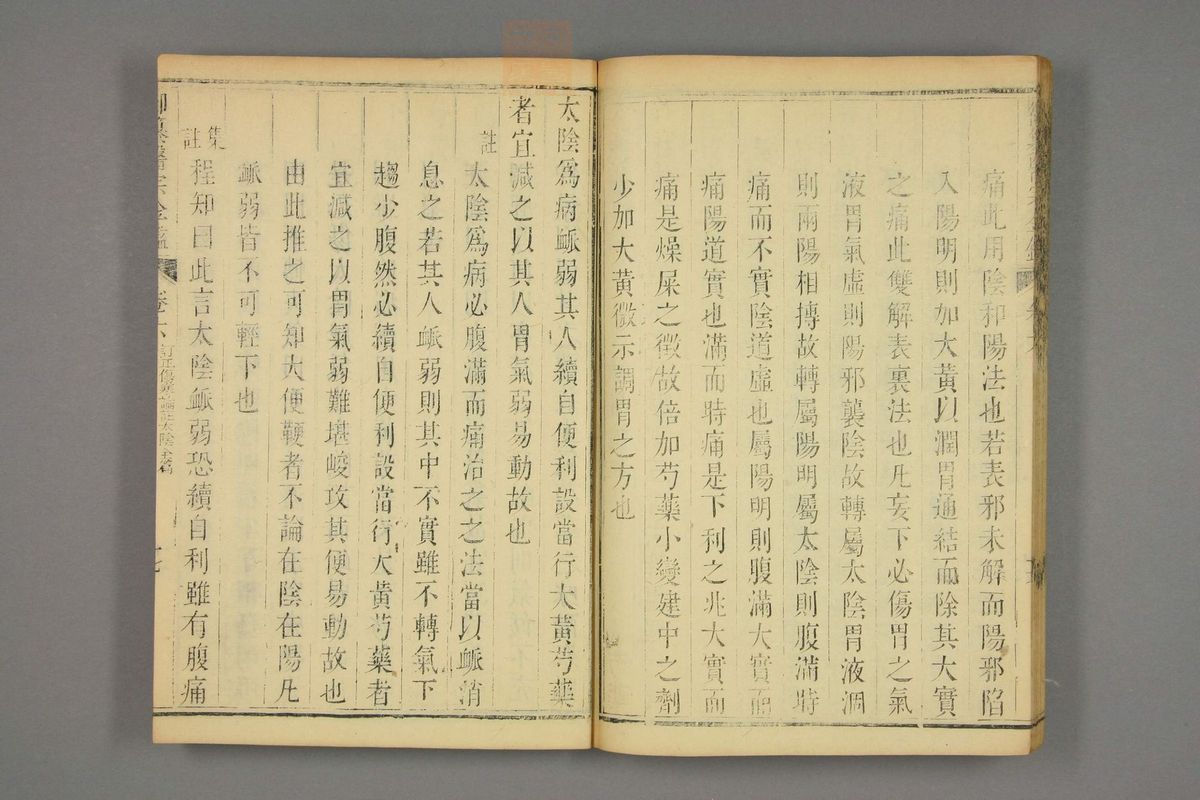 痛此用陰和陽法也若表邪未解而陽邪陷
入陽明則加大黃以潤胃通結而除其大實
之痛此雙解表裏法也凡妄下必傷胃之氣
液胃氣虛則陽邪襲陰故轉屬太陰胃液涸
則兩陽相搏故轉屬陽明屬太陰則腹滿時
痛而不實陰道虛也屬陽明則腹滿大實而
痛陽道實也滿而時痛是下利之兆大實而
痛是燥屎之徵故倍加芍藥小變建中之劑
少加大黃微示調胃之方也
太陰爲病脈弱其人續自便利設當行大黃芍藥
者宜減之以其人胃氣弱易動故也
註 太陰爲病必腹滿而痛治之之法當以脈消
息之若其人脈弱則其中不實雖不轉氣下
趨少腹然必續自便利設當行大黃芍藥者
宜減之以胃氣弱難堪峻攻其便易動故也
由此推之可知大便鞕者不論在陰在陽凡
脈弱皆不可輕下也
集註 程知曰此言太陰脈弱恐續自利雖有腹痛
御纂醫宗金鑑 卷六 訂正傷寒論註太陰全篇